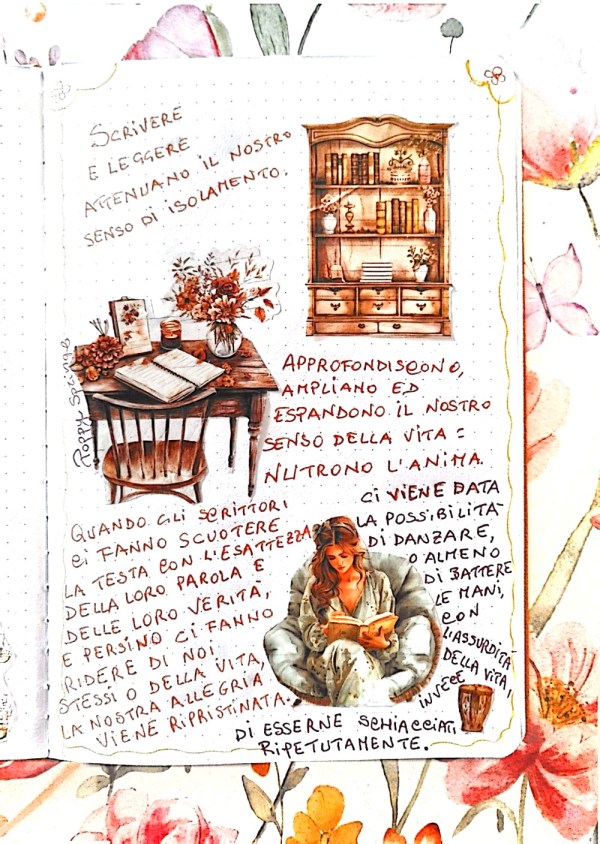 SCRIVERE
E LEGGERE
ATTENUANO IL NOSTRO
SENSO DI ISOLAMENTO.
APPROFONDISCONO,
AMPLIANO ED
ESPANDONO IL NOSTRO
SENSO DELLA VITA:
NUTRONO L'ANIMA.
QUANDO GLI SCRITTORI
CI FANNO SCUOTERE
LA TESTA CON L'ESATTEZZA
DELLA LORO PAROLA E
DELLE LORO VERITÀ,
E PERSINO CI FANNO
RIDERE DI NOI
STESSI O DELLA VITA,
LA NOSTRA ALLEGRIA
VIENE RIPRISTINATA.
CI VIENE DATA
LA POSSIBILITÀ
DI DANZARE,
O ALMENO
DI BATTERE
LE MANI,
CON
L'ASSURDITÀ
DELLA VITA,
INVECE
DI ESSERNE SCHIACCIATI
RIPETUTAMENTE.
Poppy Springs